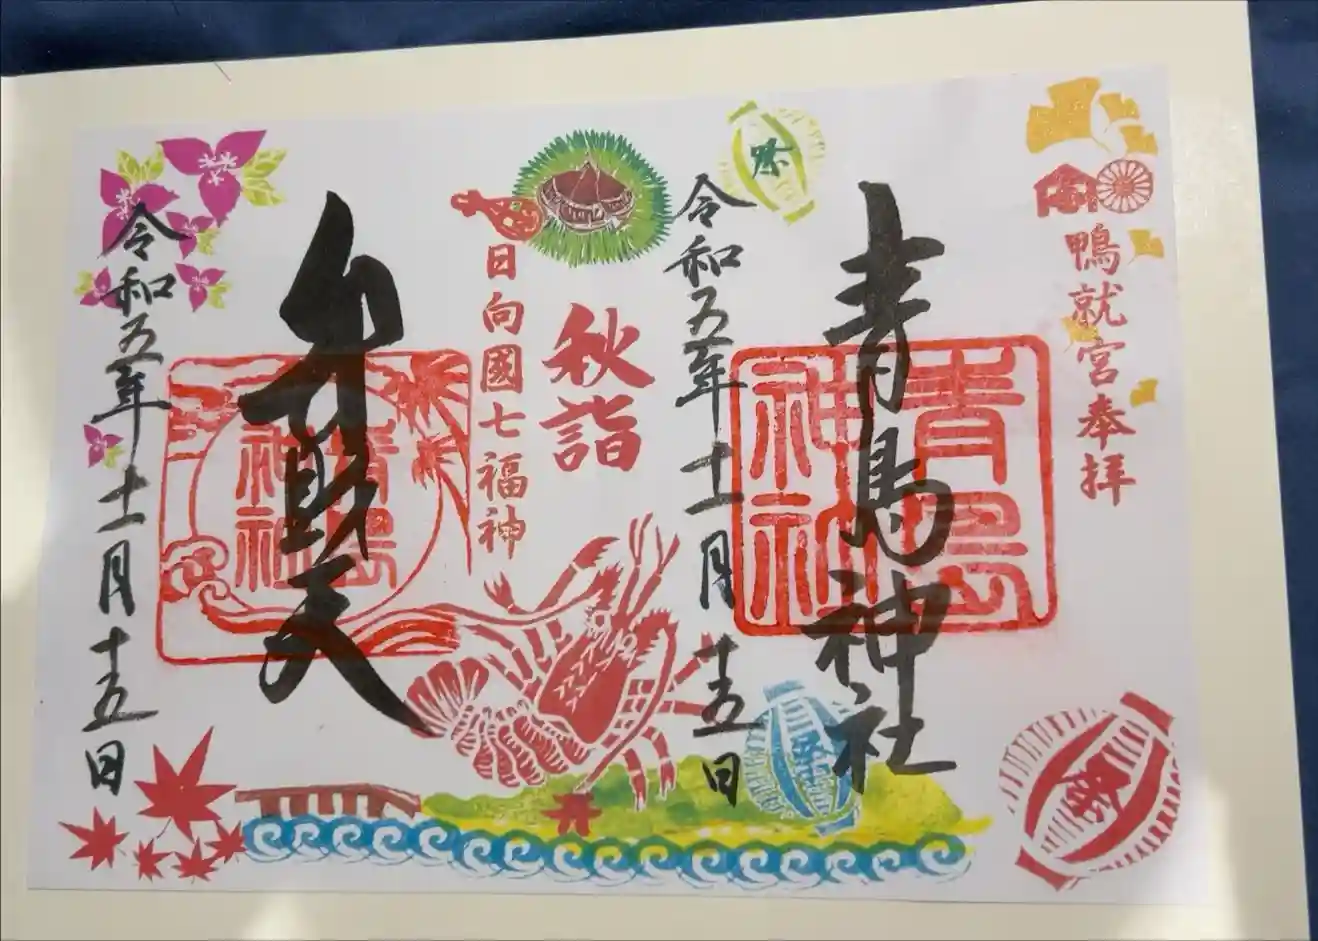 鴨就宮奉拝
青島神社
青島神社
祭
祭
祭
令和五年十一月十五日
秋詣
日向國七福神
弁財天
青島神社
令和五年十一月十五日